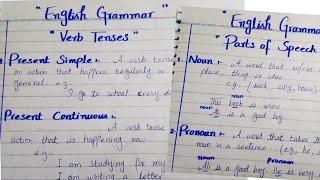 "English Grammar"
"Verb Tenses"
Present Simple :-  A verb tense
an action that happens regularly or
general. e.g.
I go to school every d
Present Continuous :-
A verb tense
action that is happening now.
e.g.
I am studying for my
I am writing a letter
"English Gramma
"Parts of Speech
1 Noun :- A word that refers
place, thing is idea.
e.g. (book, city, house)
noun
This book is mine.
noun
Ali is a good boy.
2 Pronoun :- A word that takes th
noun in a sentence.
e.g.
Noun pronoun
Ali is a good boy. He is very